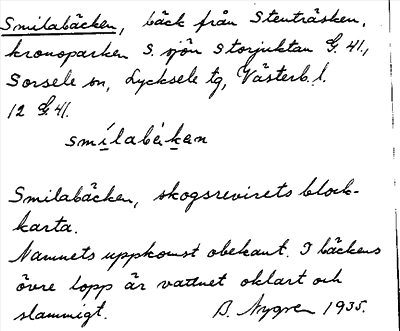 Smilabäcken, bäck från Stenträsken,
kronoparken S. sjön Storjuktan G. 41.,
Sorsele sn, Lycksele tg, Västerb. l.
12 G. 41.
smílabèkan
Smilabäcken, skogsrevirets block-
karta.
Namnets uppkomst obekant. I bäckens
övre lopp är vattnet oklart och
slammigt. B. Nygren 1935.